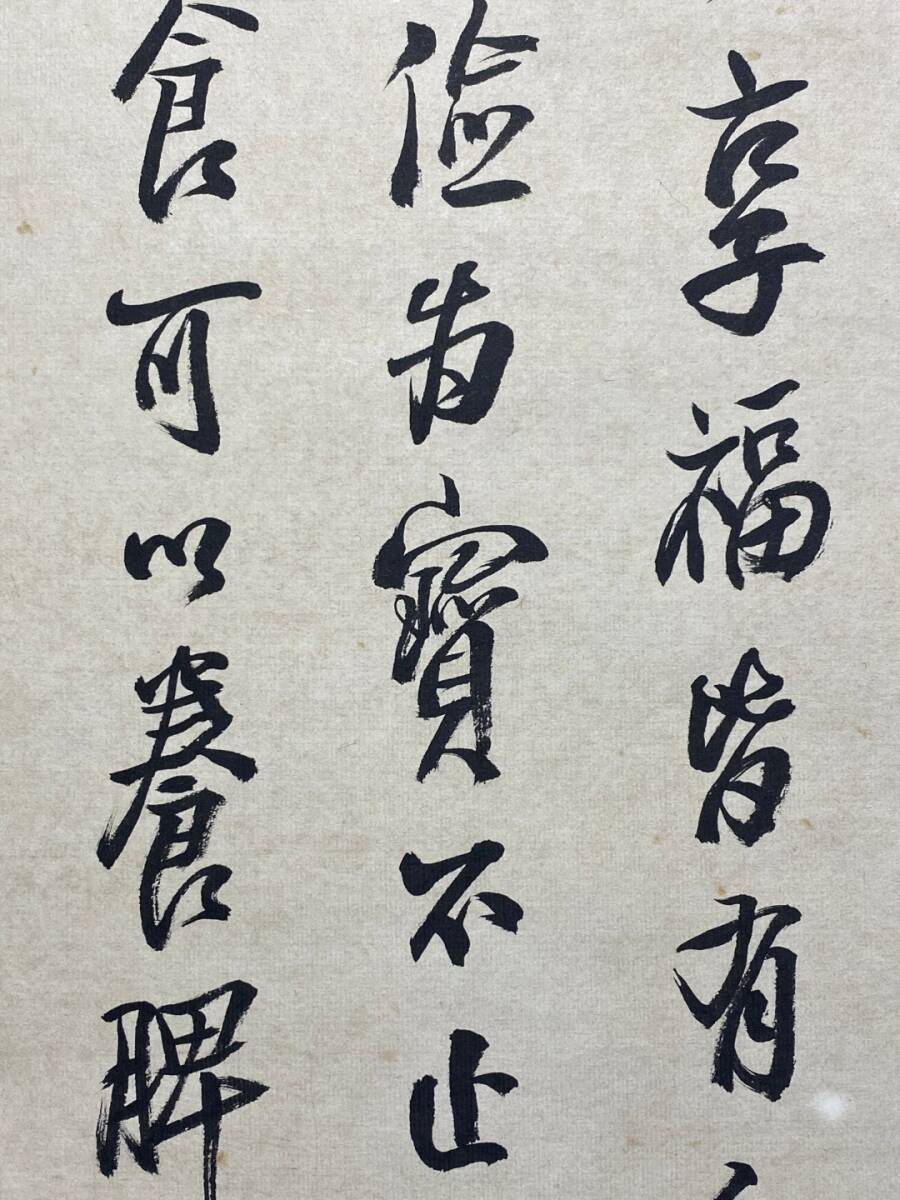 享福皆有
儉為寶不止
食可以養脾